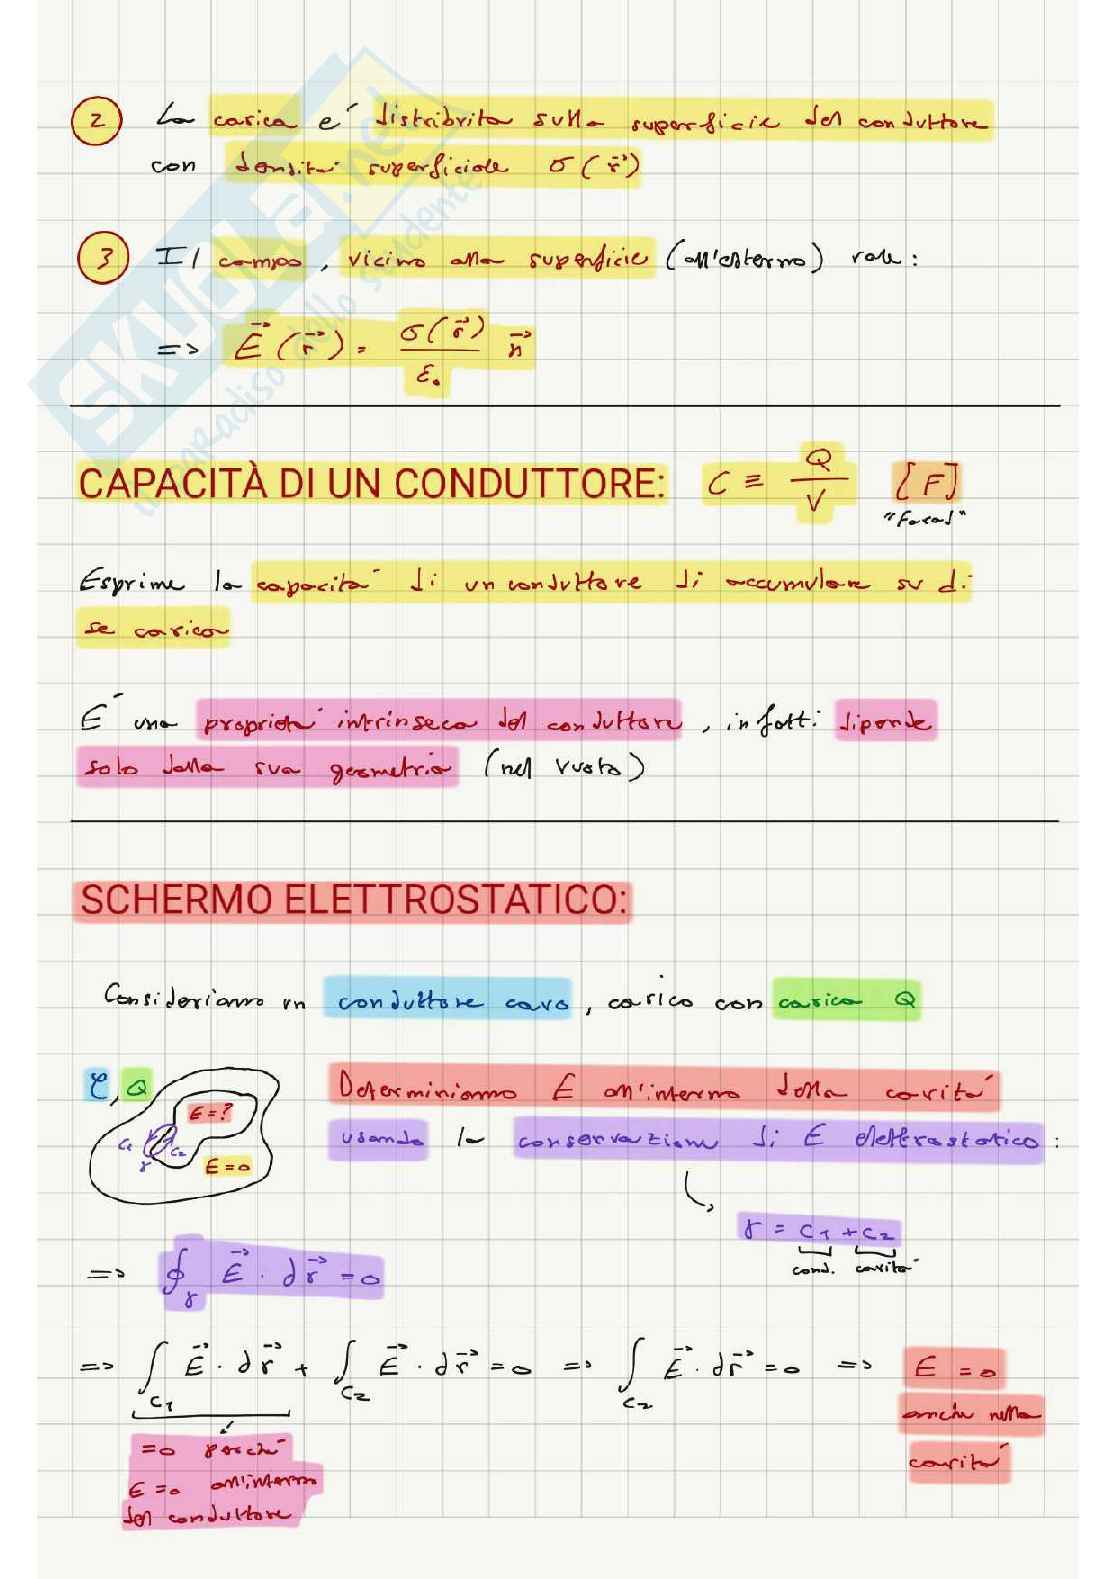 2 La carica e´ distribuita sulla superficie del conduttore
con densita´ superficiale σ(r⃗)
3 Il campo, vicino alla superficie (all'esterno) vale:
=> E⃗(r⃗) = σ(r⃗)/ε₀ n⃗
SKUOLA.net
il paradiso dello studente
CAPACITÀ DI UN CONDUTTORE: C ≡ Q/V [F]
"Farad"
Esprime la capacita´ di un conduttore di accumulare su di
se carica
E´ una proprieta´ intrinseca del conduttore, infatti dipende
solo dalla sua geometria (nel vuoto)
SCHERMO ELETTROSTATICO:
Consideriamo un conduttore cavo, carico con carica Q
C, Q
E=?
C₁ C₂
γ
E=0
Determiniamo E all'interno della cavita´
usando la conservazione di E elettrostatico:
γ = C₁ + C₂
cond. cavita´
=> ∮γ E⃗ · dr⃗ = 0
=> ∫C₁ E⃗ · dr⃗ + ∫C₂ E⃗ · dr⃗ = 0 => ∫C₂ E⃗ · dr⃗ = 0 => E = 0
anche nella
cavita´
=0 perche´
E=0 all'interno
del conduttore